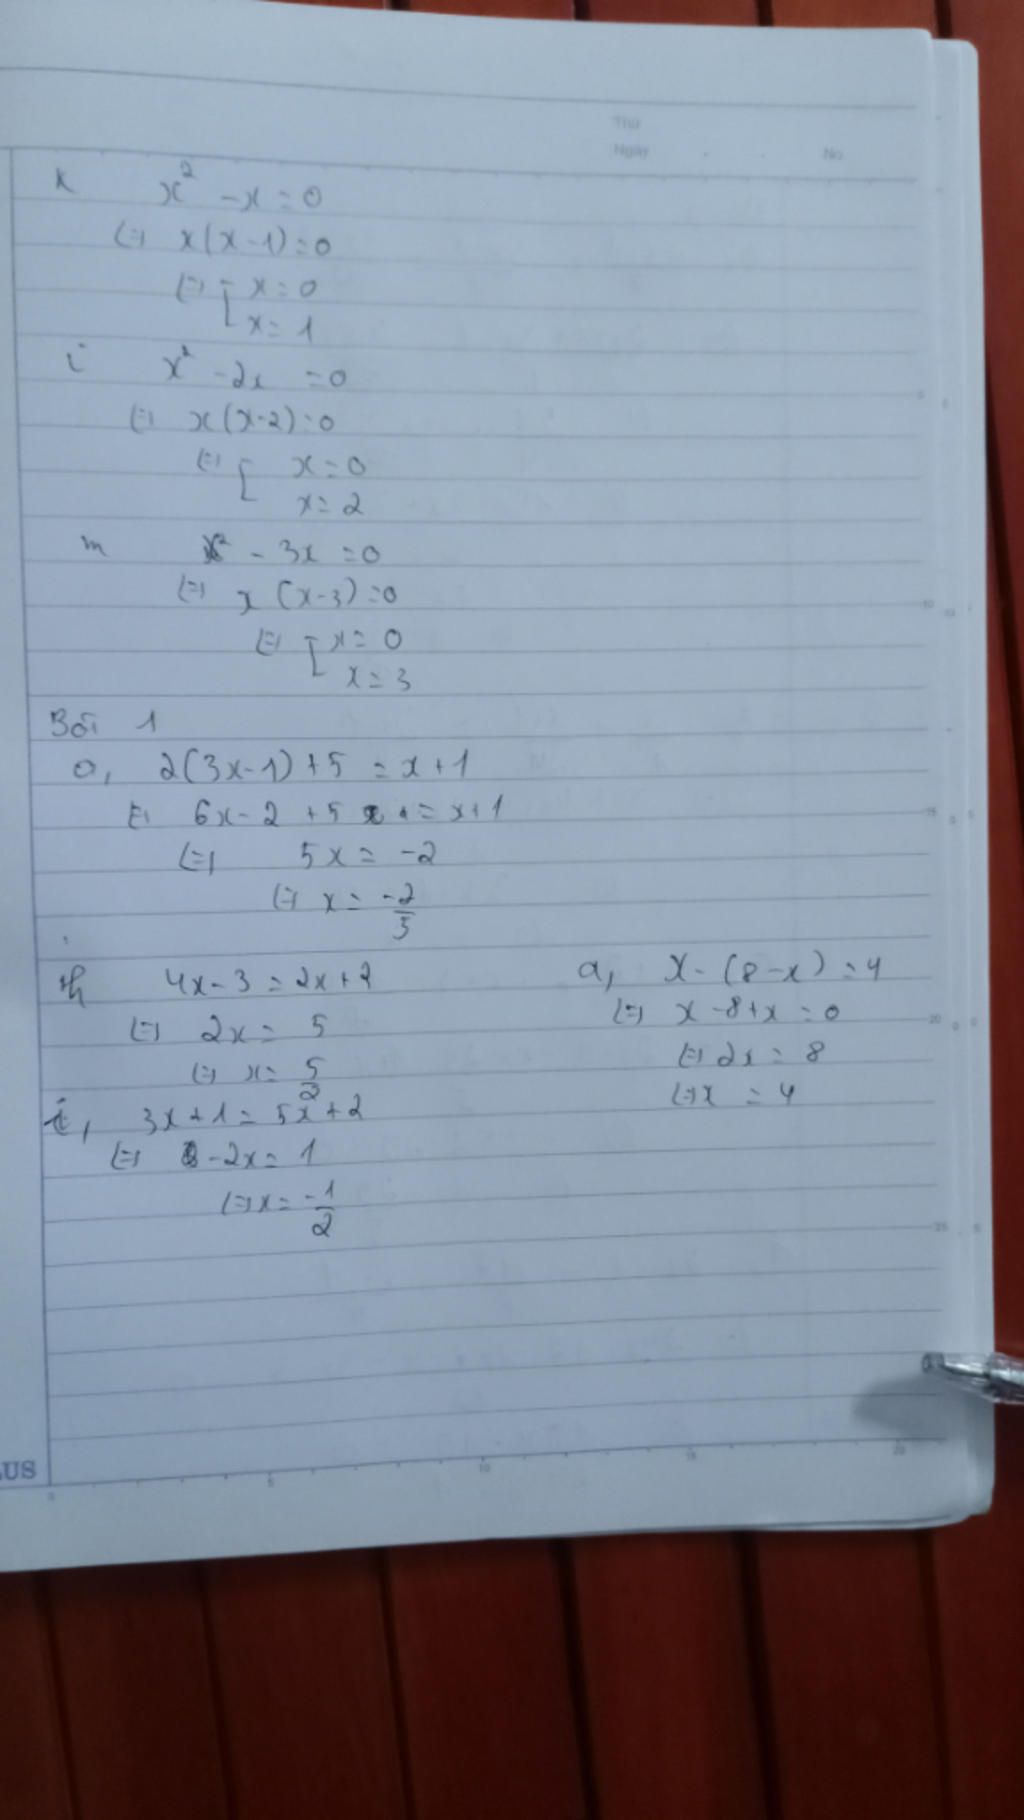 Thứ
Ngày No
k x² - x = 0
⇔ x(x-1) = 0
⇔ [ x = 0
x = 1
i x² - 2x = 0
⇔ x(x-2) = 0
⇔ [ x = 0
x = 2
m x² - 3x = 0
⇔ x (x-3) = 0
⇔ [ x = 0
x = 3
Bài 1
a, 2(3x-1) + 5 = x + 1
⇔ 6x - 2 + 5 = x + 1
⇔ 5x = -2
⇔ x = -2/5
h 4x - 3 = 2x + 2
⇔ 2x = 5
⇔ x = 5/2
i, 3x + 1 = 5x + 2
⇔ -2x = 1
⇔ x = -1/2
a, x - (8 - x) = 4
⇔ x - 8 + x = 0
⇔ 2x = 8
⇔ x = 4
US
0 5 10 15 20